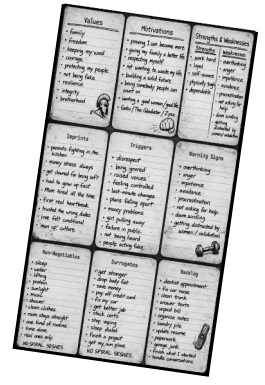 Values
• family
• freedom
• keeping my word
• courage
• protecting my people
• not being fake
• resilience
• integrity
• brotherhood
Motivations
• proving I can become more
• giving my family a better life
• respecting myself
• not wanting to waste my life
• building a solid future
• being somebody people can count on
• wanting a good woman / good life
Strengths & Weaknesses
Strengths
• work hard
• loyal
• self-aware
• dependable
Weaknesses
• overthinking
• anger
• impatience
• avoidance
• procrastination
• not asking for help
• doom scrolling
• getting distracted by women/validation
Imprints
• parents fighting in the kitchen
• money stress always
• had to grow up fast
• Mom tired all the time
• first real heartbreak
• trusted the wrong dudes
• "man up" culture
Triggers
• disrespect
• being ignored
• raised voices
• feeling controlled
• last-minute changes
• plans falling apart
• money problems
• girl pulling away
• failure in public
• not being heard
• people acting fake
Warning Signs
• overthinking
• anger
• impatience
• avoidance
• procrastination
• not asking for help
• doom scrolling
• getting distracted by women / validation
Non-Negotiables
• sleep
• water
• lifting
• protein
• sunlight
• music
• shower
• clean clothes
• room stays straight
• one kind of routine
• time alone
• real ones only
NO SPIRAL SESHES.
Surrogates
• get stronger
• drop body fat
• save money
• pay off credit card
• fix my car
• get better job
• stack certs
• stop vaping
• sleep better
• finish a project
• get my own place
NO SPIRAL SESHES.
Backlog
• dentist appointment
• fix car noise
• clean trunk
• answer texts
• unpaid bill
• organize notes
• laundry pile
• update resume
• paperwork
• garage junk
• finish what I started